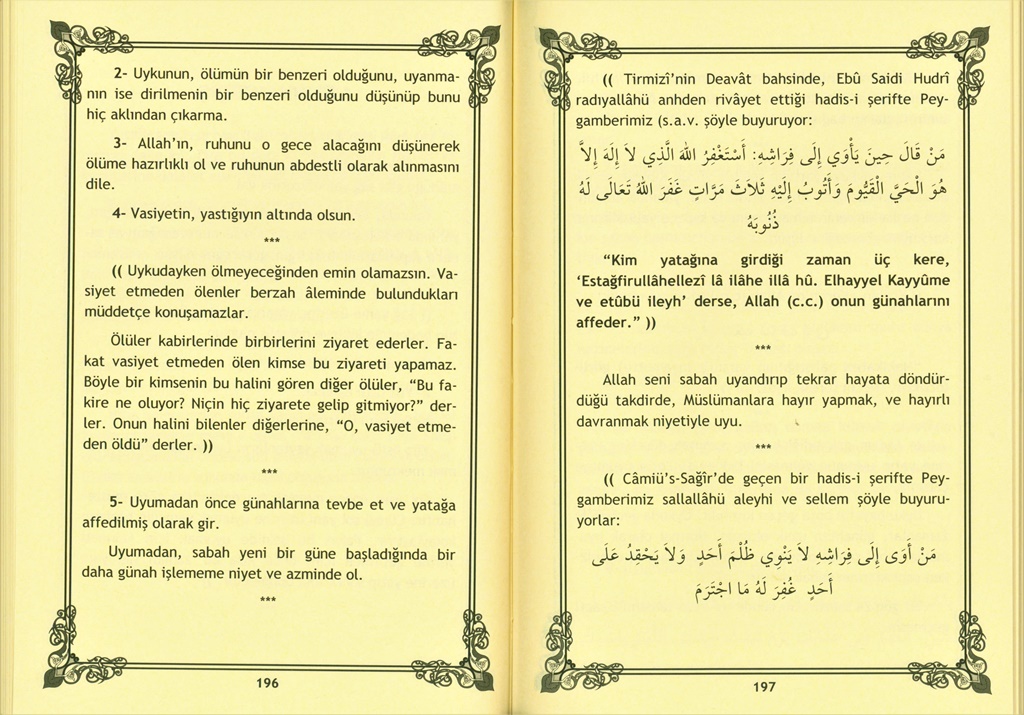 2- Uykunun, ölümün bir benzeri olduğunu, uyanma-
nın ise dirilmenin bir benzeri olduğunu düşünüp bunu
hiç aklından çıkarma.
3- Allah'ın, ruhunu o gece alacağını düşünerek
ölüme hazırlıklı ol ve ruhunun abdestli olarak alınmasını
dile.
4- Vasiyetin, yastığıyın altında olsun.
***
(( Uykudayken ölmeyeceğinden emin olamazsın. Va-
siyet etmeden ölenler berzah âleminde bulundukları
müddetçe konuşamazlar.
Ölüler kabirlerinde birbirlerini ziyaret ederler. Fa-
kat vasiyet etmeden ölen kimse bu ziyareti yapamaz.
Böyle bir kimsenin bu halini gören diğer ölüler, “Bu fa-
kire ne oluyor? Niçin hiç ziyarete gelip gitmiyor?” der-
ler. Onun halini bilenler diğerlerine, “O, vasiyet etme-
den öldü” derler. ))
***
5- Uyumadan önce günahlarına tevbe et ve yatağa
affedilmiş olarak gir.
Uyumadan, sabah yeni bir güne başladığında bir
daha günah işlememe niyet ve azminde ol.
***
196
(( Tirmizî'nin Deavât bahsinde, Ebû Saidi Hudrî
radıyallâhü anhden rivâyet ettiği hadis-i şerifte Pey-
gamberimiz (s.a.v. şöyle buyuruyor:
مَنْ قَالَ حِينَ يَأْوِي إِلَى فِرَاشِهِ: أَسْتَغْفِرُ اللهَ الَّذِي لاَ إِلَهَ إِلاَّ
هُوَ الْحَيَّ الْقَيُّومَ وَأَتُوبُ إِلَيْهِ ثَلاَثَ مَرَّاتٍ غَفَرَ اللهُ تَعَالَى لَهُ
ذُنُوبَهُ
“Kim yatağına girdiği zaman üç kere,
‘Estağfirullâhellezî lâ ilâhe illâ hû. Elhayyel Kayyûme
ve etûbü ileyh’ derse, Allah (c.c.) onun günahlarını
affeder.” ))
***
Allah seni sabah uyandırıp tekrar hayata döndür-
düğü takdirde, Müslümanlara hayır yapmak, ve hayırlı
davranmak niyetiyle uyu.
***
(( Câmiü's-Sağîr'de geçen bir hadis-i şerifte Pey-
gamberimiz sallallâhü aleyhi ve sellem şöyle buyuru-
yorlar:
مَنْ أَوَى إِلَى فِرَاشِهِ لاَ يَنْوِي ظُلْمَ أَحَدٍ وَلاَ يَحْقِدُ عَلَى
أَحَدٍ غُفِرَ لَهُ مَا اجْتَرَمَ
197